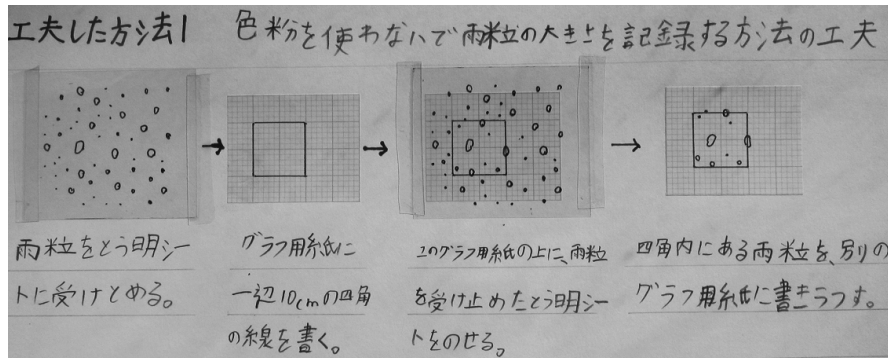 工夫した方法1 色粉を使わないで雨粒の大きさを記録する方法の工夫
雨粒をとう明シー
トに受けとめる。
グラフ用紙に
一辺10cmの四角
の線を書く。
このグラフ用紙の上に、雨粒
を受け止めたとう明シー
トをのせる。
四角内にある雨粒を、別の
グラフ用紙に書きうつす。